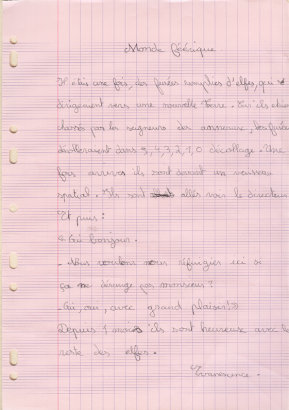 Monde Féérique
Il était une fois, des fusées remplies d'elfes, qui se
dirigeaient vers une nouvelle Terre. Car ils étaient
chassés par les seigneurs des anneaux, les fusées
décollèrent dans 5, 4, 3, 2, 1, 0 décollage. Une
fois arrivés ils sont devant un vaisseau
spatial. Ils sont allés voir le directeur
Et puis :
« Oui bonjour.
- Nous voulons nous réfugier ici si
ça ne dérange pas monsieur ?
- Oui, oui, avec grand plaisir ! »
Depuis 1 mois ils sont heureuse avec le
reste des elfes.
Evanescence.